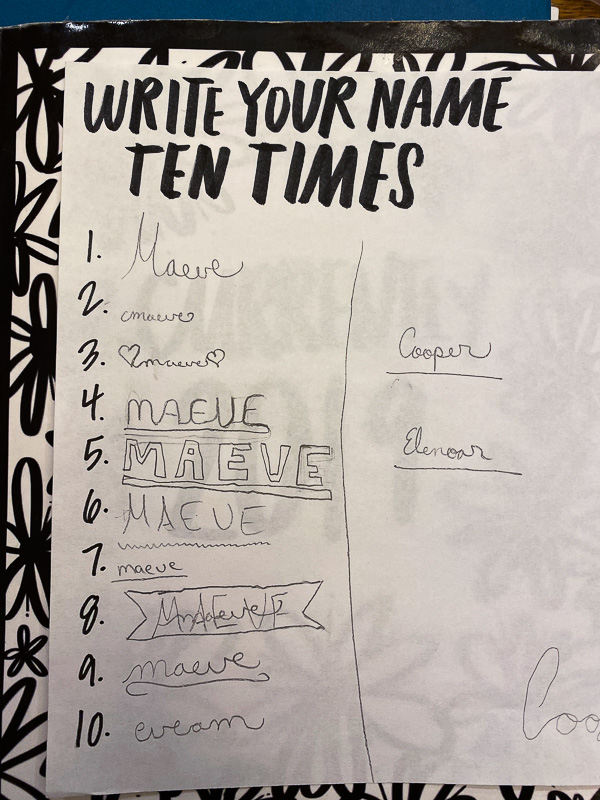 WRITE YOUR NAME
TEN TIMES
1. Maeve
2. maeve
3. ♡maeve♡
4. MAEVE
5. MAEVE
6. MAEVE
7. maeve
8.
9. maeve
10. eveam
Cooper
Elenoar